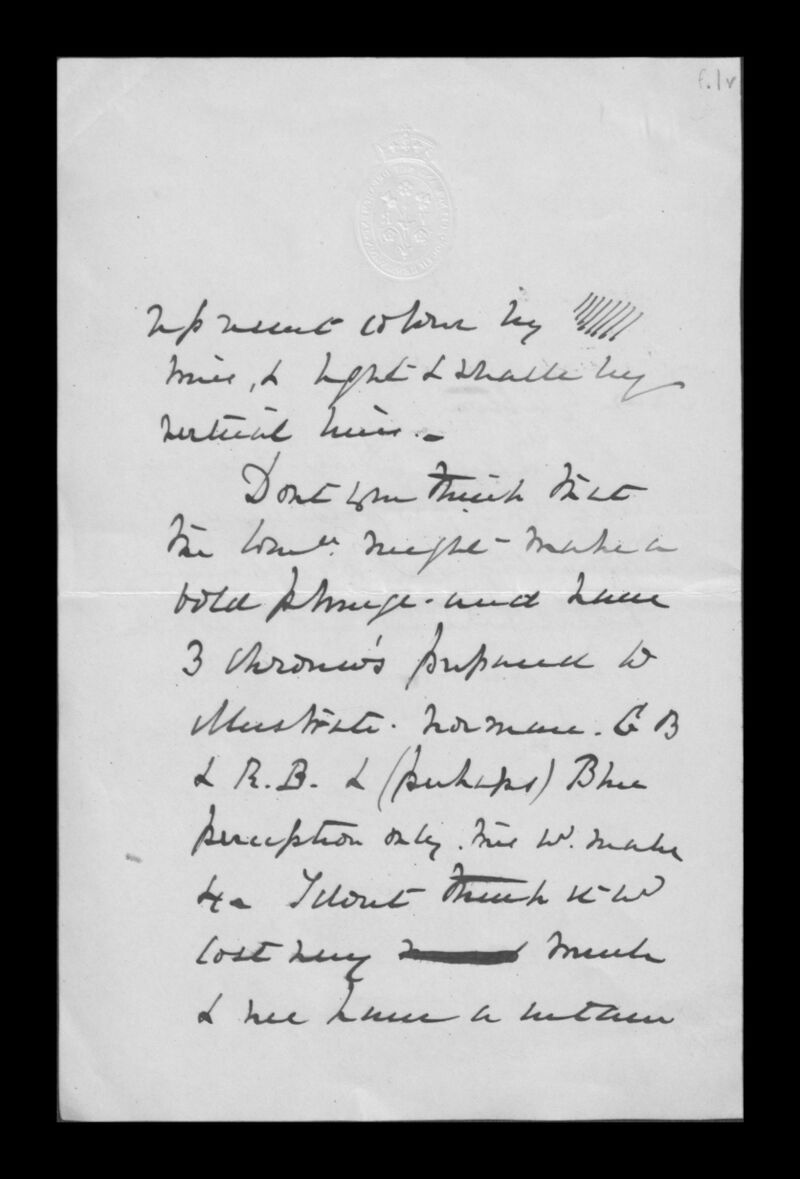 f.1v
represent colour by
lines, & light & shade by
vertical lines. -
Dont you think that
the Comee. might make a
bold plunge. and have
3 chromo's prepared to
illustrate. normal. G B
& R. B. & (perhaps) Blue
perception only. this wd. make
4 - I dont think it wd
cost very much
& we have a certain